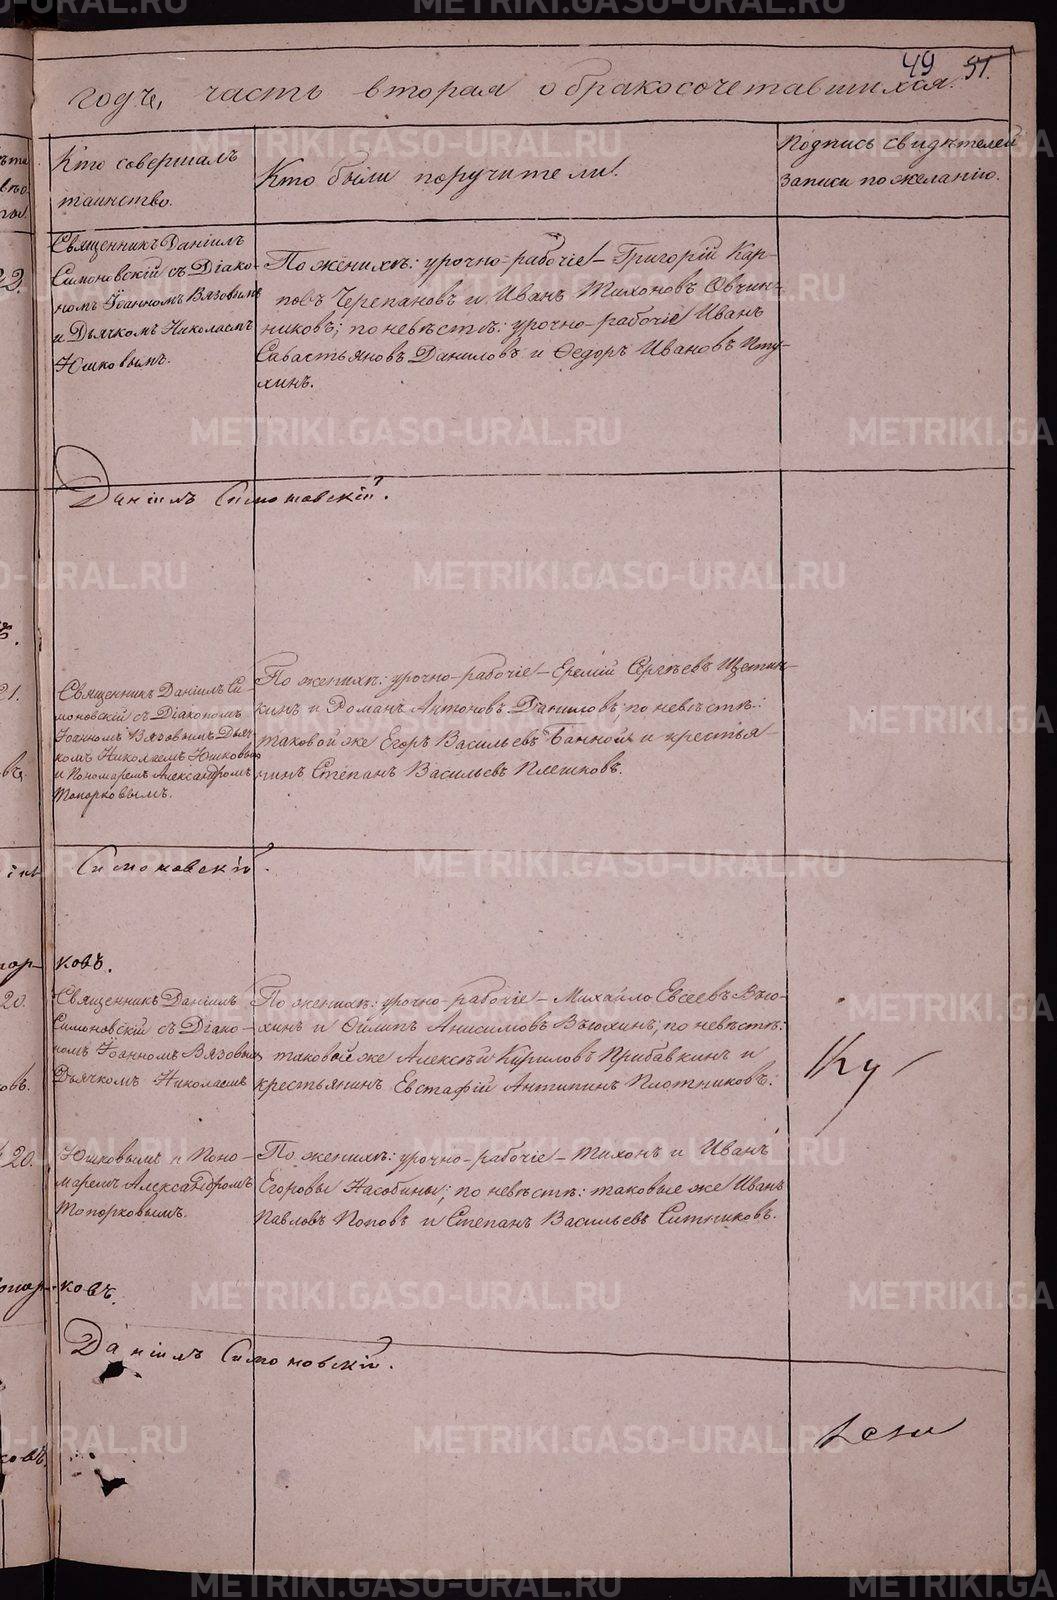 49 51.
годъ, часть вторая о бракосочетавшихся.
Кто совершалъ
таинство.
Кто были поручители.
Подпись свидѣтелей
записи по желанію.
Священникъ Даніилъ
Симоновскій съ Діако-
номъ Іоанномъ Вязовымъ
и Дьячкомъ Николаемъ
Юшковымъ.
По женихѣ: урочно-рабочіе – Григорій Кар-
повъ Черепановъ и Иванъ Тихоновъ Овчин-
никовъ; по невѣстѣ: урочно-рабочіе Иванъ
Савастьяновъ Даниловъ и Ѳедоръ Ивановъ Пту-
хинъ.
Даніилъ Симоновскій.
Священникъ Даніилъ Си-
моновскій съ Діакономъ
Іоанномъ Вязовымъ Дьяч-
комъ Николаемъ Юшковымъ
и Пономаремъ Александромъ
Топорковымъ.
По женихѣ: урочно-рабочіе – Ермій Сергѣевъ Щетин-
кинъ и Романъ Антоновъ Даниловъ; по невѣстѣ:
таковой же Егоръ Васильевъ Банной и крестья-
нинъ Степанъ Васильевъ Плешковъ.
Симоновскій.
ковъ.
Священникъ Даніилъ
Симоновскій съ Діако-
номъ Іоанномъ Вязовымъ
Дьячкомъ Николаемъ
По женихѣ: урочно-рабочіе – Михайло Евсеевъ Вью-
хинъ и Филипъ Анисимовъ Вьюхинъ; по невѣстѣ:
таковой же Алексѣй Кириловъ Прибавкинъ и
крестьянинъ Евстафій Антипинъ Плотниковъ.
Юшковымъ и Поно-
маремъ Александромъ
Топорковымъ.
По женихѣ: урочно-рабочіе – Тихонъ и Иванъ
Егоровы Насобины; по невѣстѣ: таковые же Иванъ
Павловъ Поповъ и Степанъ Васильевъ Ситниковъ.
ковъ.
Даніилъ Симоновскій.
METRIKI.GASO-URAL.RU